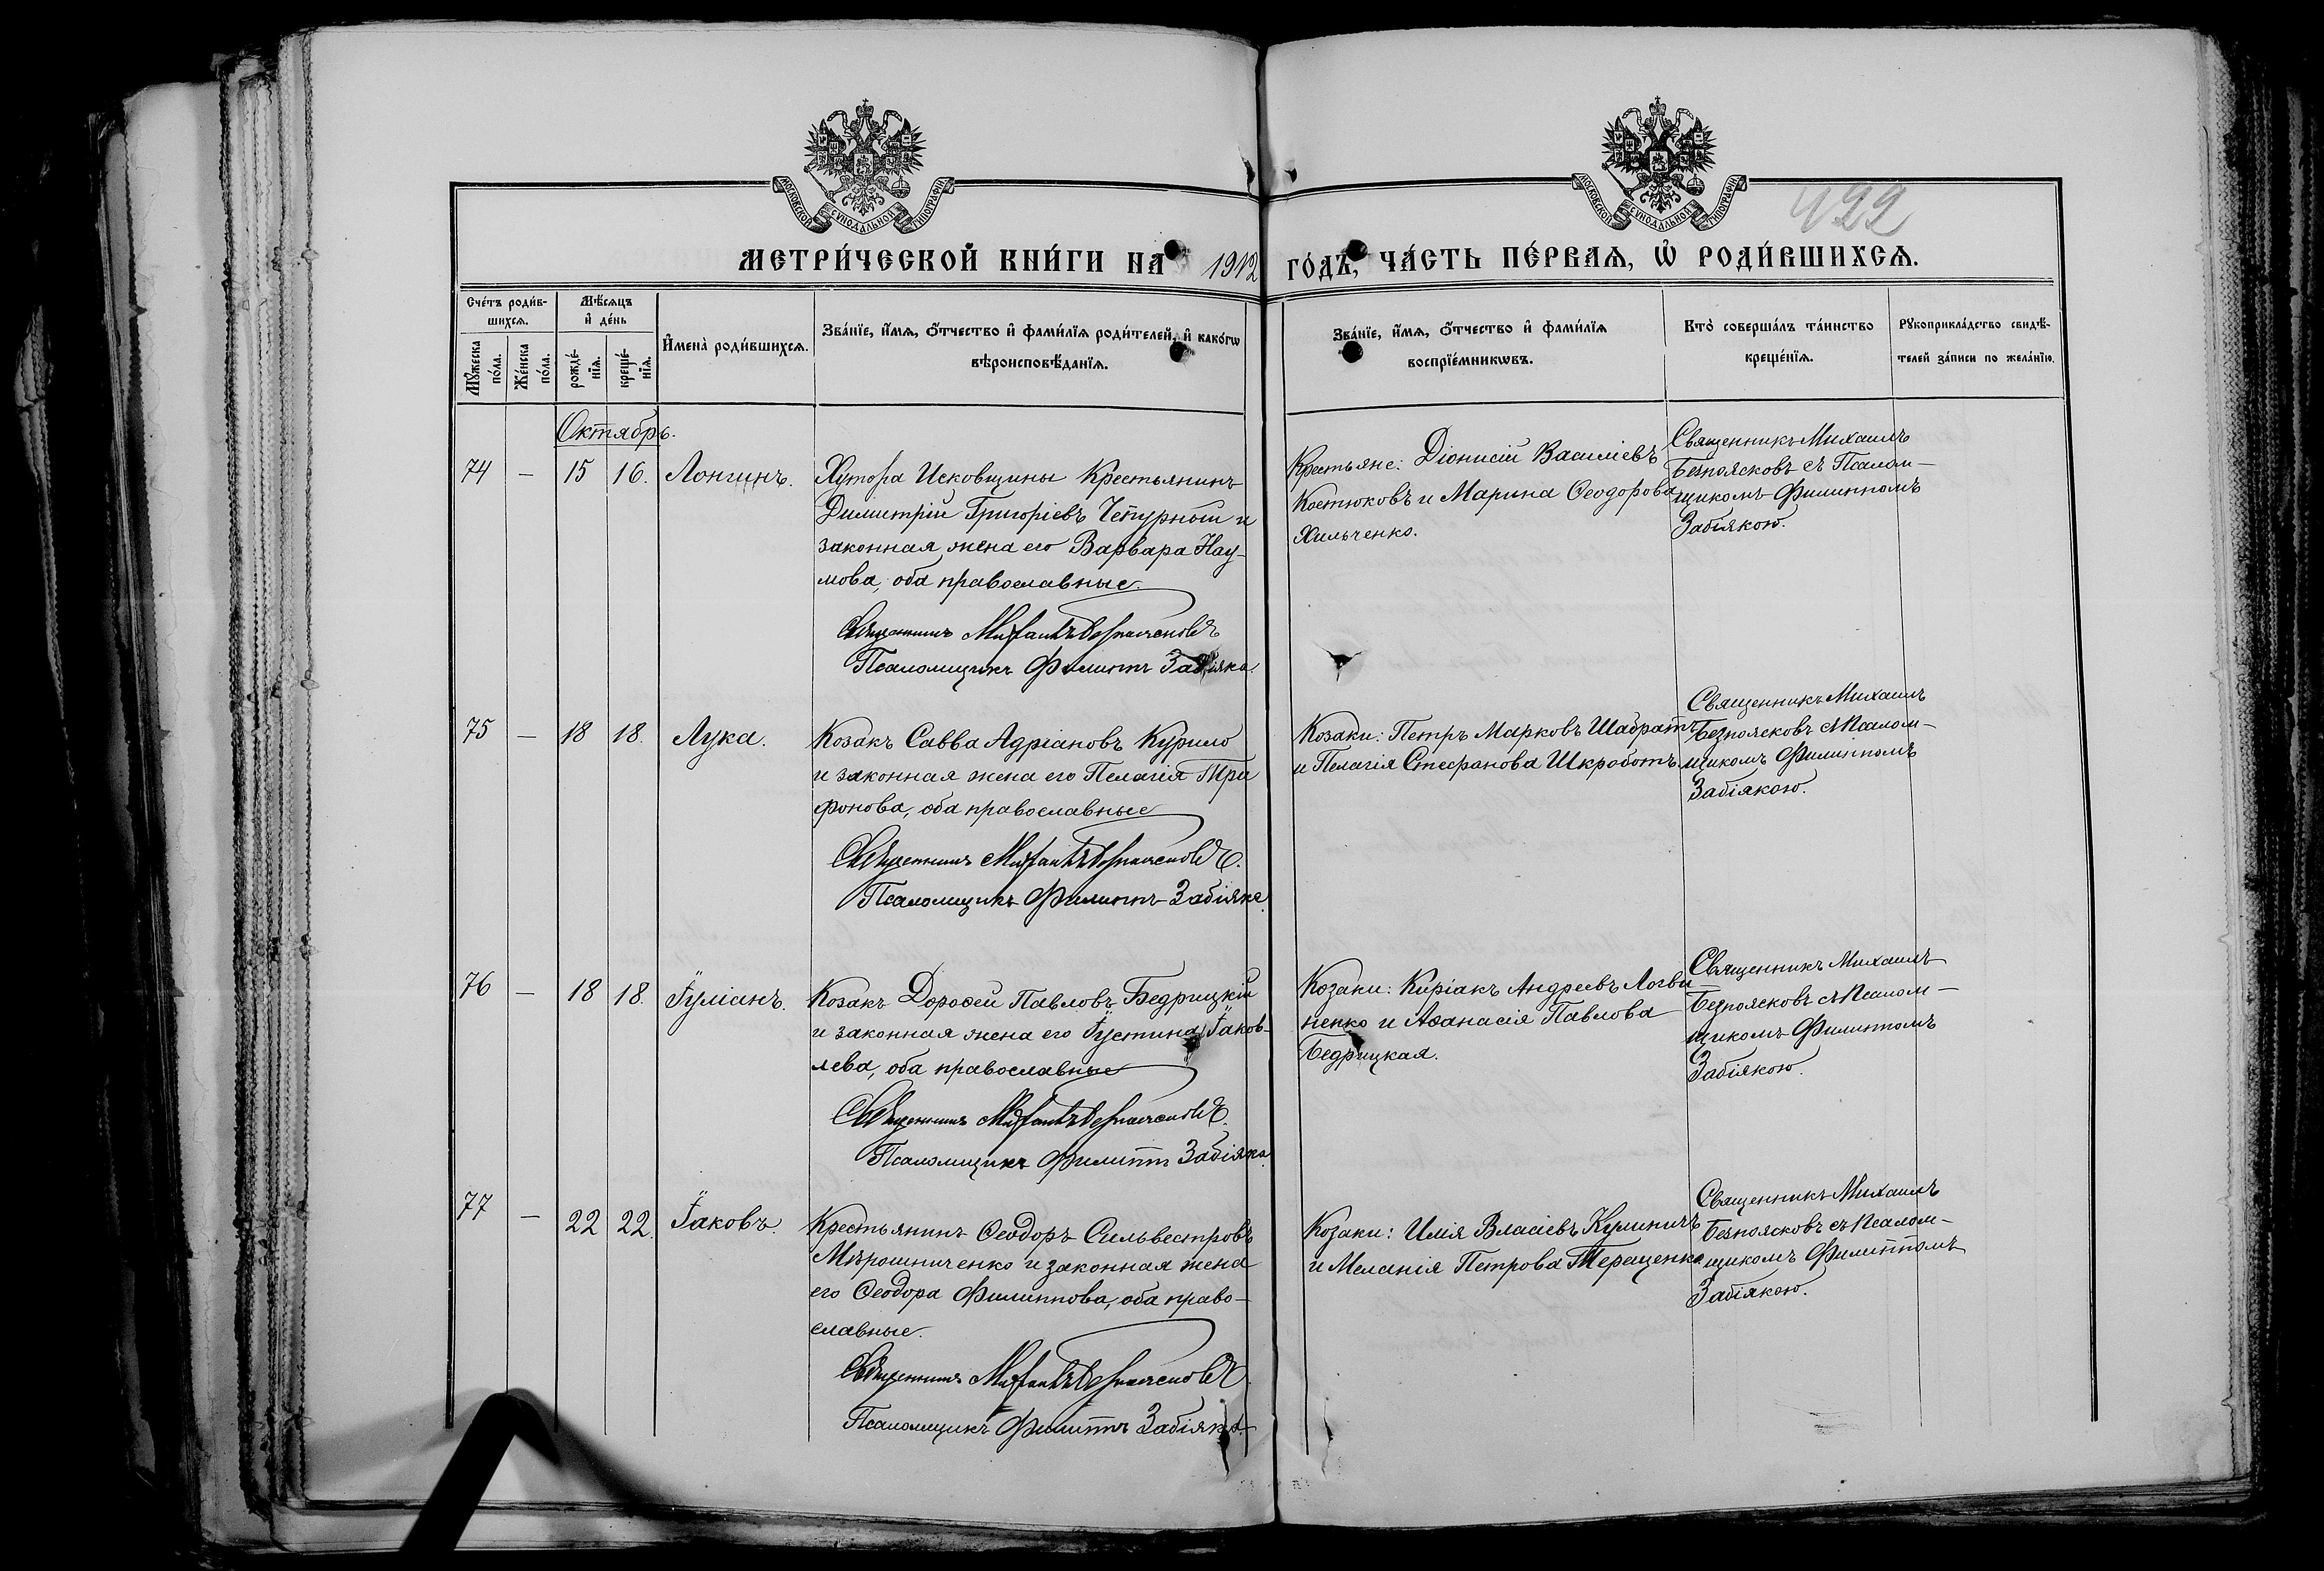 МОСКОВСКОЙ СѴНОДАЛЬНОЙ ТИПОГРАФІИ
МОСКОВСКОЙ СѴНОДАЛЬНОЙ ТИПОГРАФІИ
422
МЕТРИ́ЧЕСКОЙ КНИ́ГИ НА 1912 ГО́ДЪ, ЧА́СТЬ ПЕ́РВАѦ, Ѡ҆ РОДИ́ВШИХСѦ.
Сче́тъ роди́в-
шихсѧ.
Мѣ́сѧцъ
и҆ де́нь
Мꙋ́жеска
по́ла.
Же́нска
по́ла.
рожде́-
нїѧ.
креще́-
нїѧ.
И҆мена̀ роди́вшихсѧ.
Зва́нїе, и҆́мѧ, ѻ҆́тчество и҆ фами́лїѧ роди́телей, и҆ како́гѡ
вѣроисповѣ́данїѧ.
Зва́нїе, и҆́мѧ, ѻ҆́тчество и҆ фами́лїѧ
воспрїе́мникѡвъ.
Кто̀ соверша́лъ та́инство
креще́нїѧ.
Рꙋкоприкла́дство свидѣ́-
телей за́писи по жела́нїю.
Октябрь.
74 — 15 16. Лонгинъ.
Хутора Исковщины Крестьянинъ
Димитрій Григоріевъ Чепурной и
законная жена его Варвара Нау-
мова, оба православные.
Священникъ Михаилъ Безпоясковъ
Псаломщикъ Филиппъ Забіяка.
Крестьяне: Діонисій Василіевъ
Костюковъ и Марина Ѳеодорова
Хильченко.
Священникъ Михаилъ
Безпоясковъ съ Псалом-
щикомъ Филиппомъ
Забіякою.
75 — 18 18. Лука.
Козакъ Савва Адріановъ Курило
и законная жена его Пелагія Три
фонова, оба православные
Священникъ Михаилъ Безпоясковъ.
Псаломщикъ Филиппъ Забіяка.
Козаки: Петръ Марковъ Шабратъ
и Пелагія Стефанова Шкроботъ.
Священникъ Михаилъ
Безпоясковъ съ Псалом-
щикомъ Филиппомъ
Забіякою.
76 — 18 18. Іуліанъ.
Козакъ Дороѳей Павловъ Бедрицкій
и законная жена его Іустина Іаков-
лева, оба православные
Священникъ Михаилъ Безпоясковъ.
Псаломщикъ Филиппъ Забіяка.
Козаки: Киріакъ Андреевъ Логви-
ненко и Аѳанасія Павлова
Бедрицкая.
Священникъ Михаилъ
Безпоясковъ съ Псалом-
щикомъ Филиппомъ
Забіякою.
77 — 22 22. Іаковъ.
Крестьянинъ Ѳеодоръ Сильвестровъ
Мірошниченко и законная жена
его Ѳеодора Филиппова, оба право-
славные.
Священникъ Михаилъ Безпоясковъ.
Псаломщикъ Филиппъ Забіяка.
Козаки: Илія Власіевъ Кулиничъ
и Меланія Петрова Терещенко.
Священникъ Михаилъ
Безпоясковъ съ Псалом-
щикомъ Филиппомъ
Забіякою.